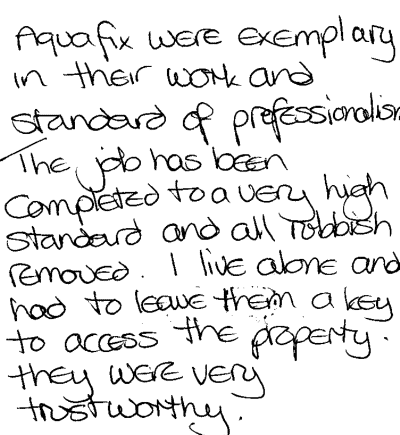 Aquafix were exemplary
in their work and
standard of professionalism
The job has been
completed to a very high
standard and all rubbish
removed. I live alone and
had to leave them a key
to access the property.
they were very
trustworthy.